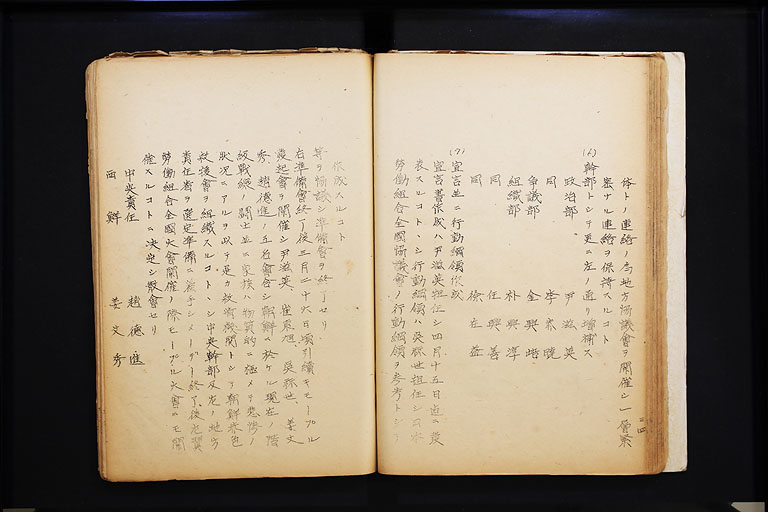 体トノ連絡ノ為地方協議会ヲ開催シ一層緊
密ナル連絡ヲ保持スルコト
幹部トシテ更ニ左ノ通リ増補ス
政治部 尹滋英
同 李
争議部 金興
組織部 朴興
同 任興善
同 徐在益
(ワ)宣言並ニ行動綱領作成
宣言書作成ハ尹滋英担任シ四月十五日迄ニ発
表スルコトトシ行動綱領ハ呉 世担任シ日本
労働組合全国協議会ノ行動綱領ヲ参考トシテ
作成スルコト
等ヲ協議シ準備会ヲ終了セリ
右準備会終了後三月二十六日頃引続キモープル
発起会ヲ開催シ尹滋英、崔 旭、呉 世、姜文
秀、趙徳進ノ五名会合シ朝鮮ニ於ケル現在ノ階
級戦線ノ闘士並ニ家族ハ物質的ニ極メテ悲惨ノ
状況ニアルヲ以テ更ニ救援機関トシテ朝鮮赤色
救援会ヲ組織スルコトトシ中央幹部及左ノ地方
責任者ヲ選定準備ニ着手シメーデー終了後左翼
労働組合全国大会開催ノ際モープル大会ヲモ開
催スルコトニ決定シ散会セリ
中央責任 趙徳進
西鮮 姜文秀